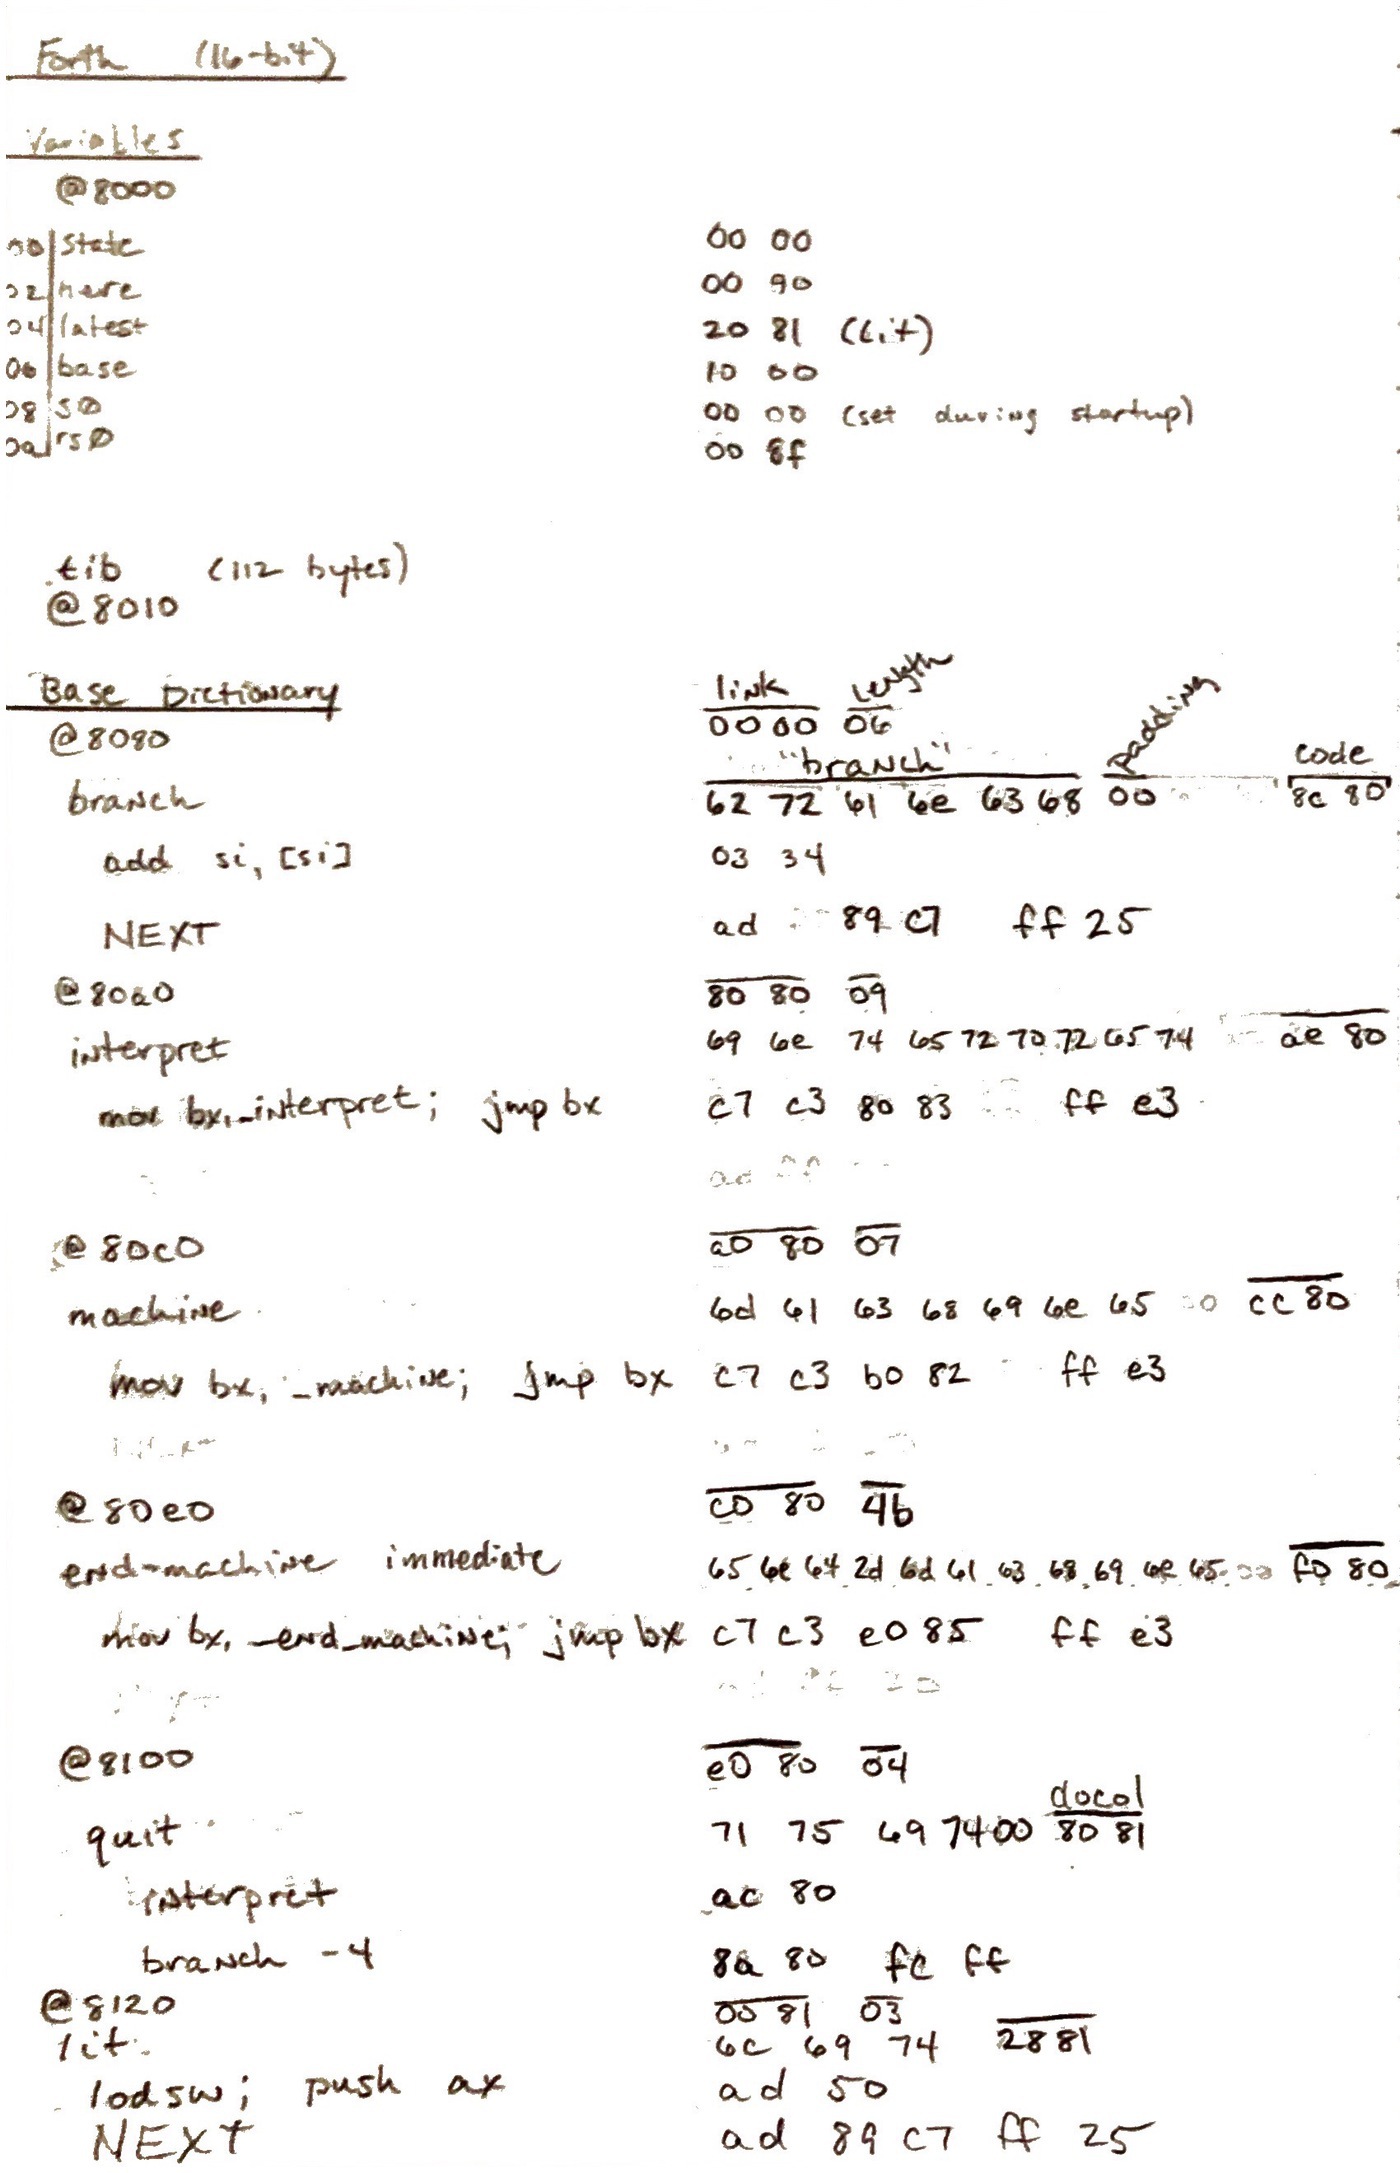 Forth (16-bit)
Variables
@8000
00 state 00 00
02 here 00 90
04 latest 20 81 (lit)
06 base 10 00
08 s0 00 00 (set during startup)
0a rs0 00 8f
tib (112 bytes)
@8010
Base Dictionary link length
@8080 00 00 06
"branch" padding code
branch 62 72 61 6e 63 68 00 8c 80
add si, [si] 03 34
NEXT ad 89 c7 ff 25
@80a0 80 80 09
interpret 69 6e 74 65 72 70 72 65 74 ae 80
mov bx, _interpret; jmp bx c7 c3 80 83 ff e3
ad ff
@80c0 a0 80 07
machine 6d 61 63 68 69 6e 65 00 cc 80
mov bx, _machine; jmp bx c7 c3 b0 82 ff e3
@80e0 c0 80 4b
end-machine immediate 65 6e 64 2d 6d 61 63 68 69 6e 65 00 f0 80
mov bx, _end_machine; jmp bx c7 c3 e0 85 ff e3
@8100 e0 80 04
docol
quit 71 75 69 74 00 80 81
interpret ac 80
branch -4 8a 80 fc ff
@8120 00 81 03
lit 6c 69 74 28 81
lodsw; push ax ad 50
NEXT ad 89 c7 ff 25